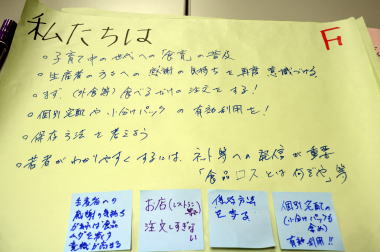 私たちは
F
○子育て中の世代への「食育」の普及
○生産者の方々への感謝の気持ちを再度意識づける
○まず、(外食等)食べるだけの注文をする!
○個別宅配や小分けパックの有効利用を!
○保存方法を考えよう
○若者がわかりやすくするには、ネット等への配信が重要
「食品ロスとは何ぞや」等
生産者への
感謝の気持ち
があれば食品
ムダを減らす
意識が高まる
お店(レストラン等)
注文しすぎない
保存方法
を考る
個別宅配の
(小分けパックも含め)
有効利用!!